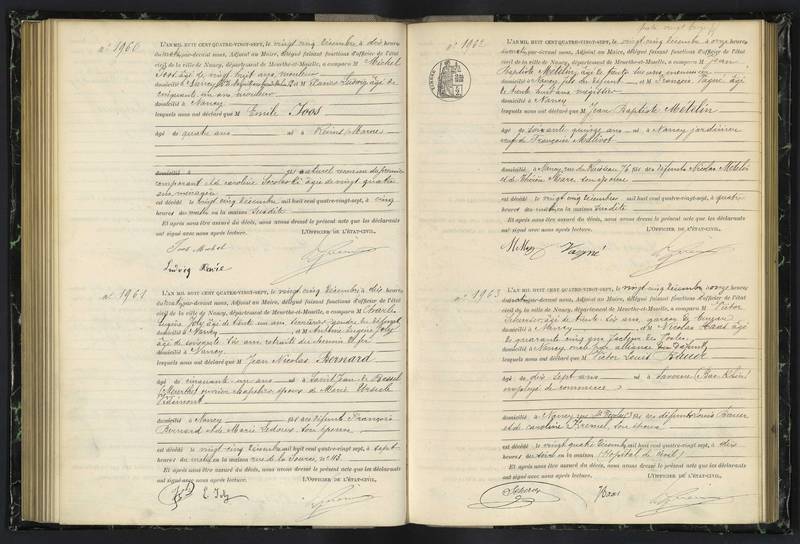 n° 1960
L'AN MIL HUIT CENT QUATRE-VINGT-SEPT, le vingt cinq Décembre à dix heures
du matin, par-devant nous, Adjoint au Maire, délégué faisant fonctions d'officier de l'état
civil de la ville de Nancy, département de Meurthe-et-Moselle, a comparu M Michel
Joos, âgé de vingt huit ans, mouleur
domicilié à Nancy et M Ludwig âgé de
cinquante un ans mouleur
domicilié à Nancy
lesquels nous ont déclaré que M Emile Joos
âgé de quatre ans né à Reims Marne
domicilié fils naturel reconnu du premier
comparant et de Caroline âgée de vingt quatre
ans ménagère
est décédé le vingt cinq Décembre mil huit cent quatre-vingt-sept, à cinq
heures du matin en la maison Susdite
Et après nous être assuré du décès, nous avons dressé le présent acte que les déclarants
ont signé avec nous après lecture. L'OFFICIER DE L'ÉTAT-CIVIL,
Joos Michel
Ludwig
n° 1961
L'AN MIL HUIT CENT QUATRE-VINGT-SEPT, le vingt cinq Décembre à dix heures
du matin, par-devant nous, Adjoint au Maire, délégué faisant fonctions d'officier de l'état
civil de la ville de Nancy, département de Meurthe-et-Moselle, a comparu M Charles
Eugène Joly âgé de trente un ans gendre du défunt
domicilié à Nancy et M Antoine Eugène Joly
âgé de soixante six ans retraité du chemin de fer
domicilié à Nancy
lesquels nous ont déclaré que M Jean Nicolas Bernard
âgé de cinquante un ans né à Saint Jean de Bassel
(Meurthe) ouvrier époux de Marie Ursule
Vidémont
domicilié à Nancy fils des défunts François
Bernard et de Marie Ledoux son épouse
est décédé le vingt cinq Décembre mil huit cent quatre-vingt-sept, à sept
heures du matin en la maison rue de la Source, n° 43
Et après nous être assuré du décès, nous avons dressé le présent acte que les déclarants
ont signé avec nous après lecture. L'OFFICIER DE L'ÉTAT-CIVIL,
E Joly
n° 1962
L'AN MIL HUIT CENT QUATRE-VINGT-SEPT, le vingt cinq Décembre à onze heures
du matin, par-devant nous, Adjoint au Maire, délégué faisant fonctions d'officier de l'état
civil de la ville de Nancy, département de Meurthe-et-Moselle, a comparu M Jean
Baptiste Metelin, âgé de trente ans menuisier
domicilié à Nancy fils du défunt et M François Vagné âgé
de trente huit ans magasinier
domicilié à Nancy
lesquels nous ont déclaré que M Jean Baptiste Metelin
âgé de soixante quinze ans né à Nancy jardinier
veuf de Françoise
domicilié à Nancy, rue du Ruisseau 76 fils des défunts Nicolas Metelin
et de Thérèse Marc son épouse
est décédé le vingt cinq Décembre mil huit cent quatre-vingt-sept, à quatre
heures du matin en la maison Susdite
Et après nous être assuré du décès, nous avons dressé le présent acte que les déclarants
ont signé avec nous après lecture. L'OFFICIER DE L'ÉTAT-CIVIL,
Vagné
n° 1963
L'AN MIL HUIT CENT QUATRE-VINGT-SEPT, le vingt cinq Décembre onze heures
du matin, par-devant nous, Adjoint au Maire, délégué faisant fonctions d'officier de l'état
civil de la ville de Nancy, département de Meurthe-et-Moselle, a comparu M Victor
âgé de trente six ans, garçon de bureau
domicilié à Nancy et M Nicolas Haas âgé
de quarante cinq ans facteur des Postes
domicilié à Nancy, oncle par alliance du défunt
lesquels nous ont déclaré que M Victor Louis Bauer
âgé de dix sept ans né à Saverne (Bas-Rhin)
employé de commerce
domicilié à Nancy rue St Nicolas fils des défunts Louis Bauer
et de Caroline Kremel, son épouse
est décédé le vingt quatre Décembre mil huit cent quatre-vingt-sept, à dix
heures du soir en la maison (Hôpital civil)
Et après nous être assuré du décès, nous avons dressé le présent acte que les déclarants
ont signé avec nous après lecture. L'OFFICIER DE L'ÉTAT-CIVIL,
Haas